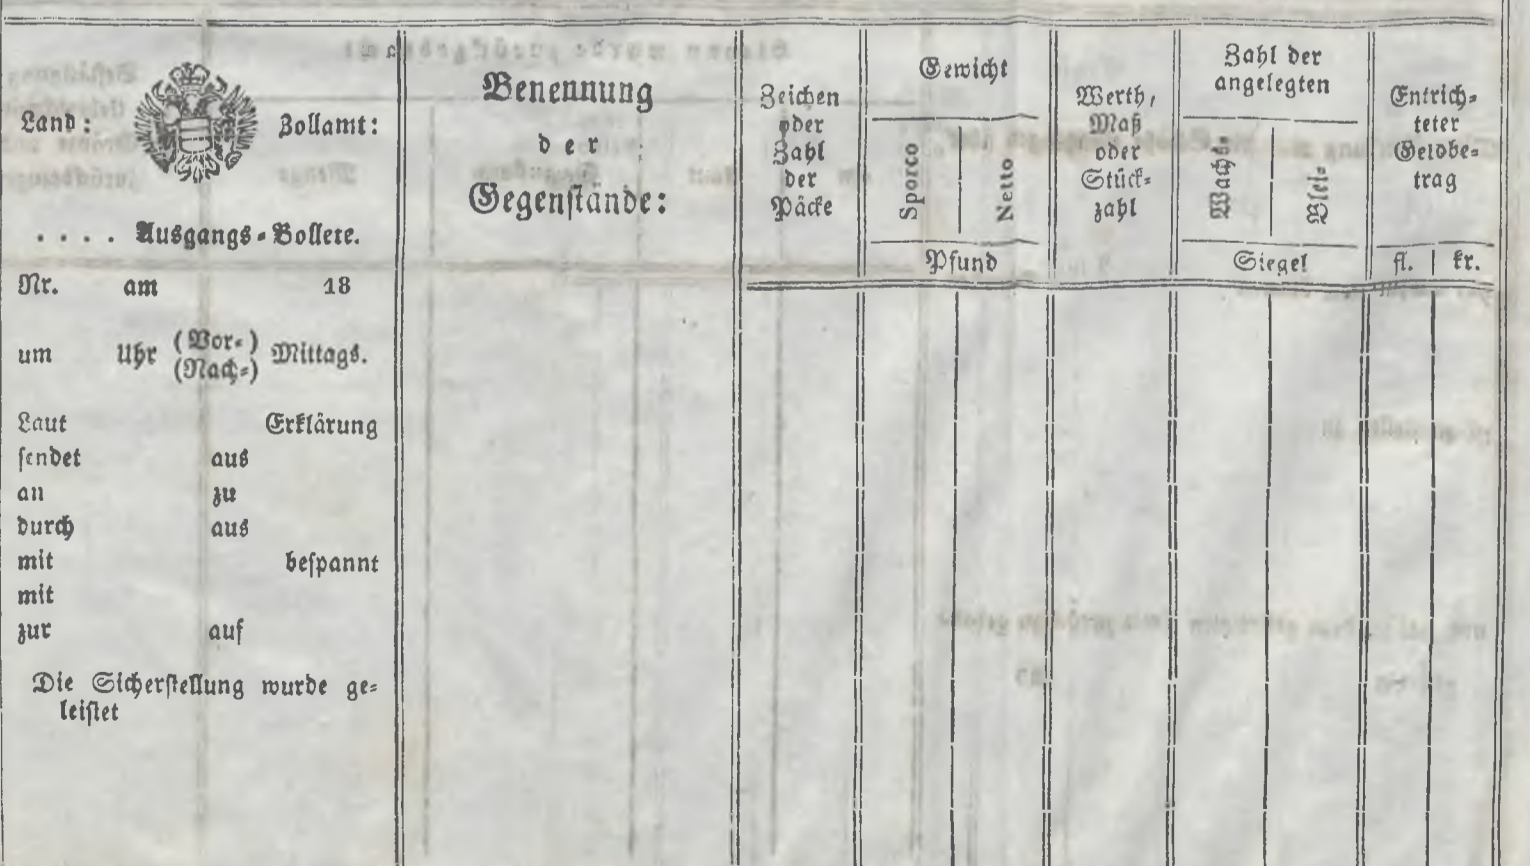 Land: Zollamt:
. . . . Ausgangs-Bollete.
Nr. am 18
um Uhr (Vor-) Mittags.
(Nach-)
Laut Erklärung
sendet aus
an zu
durch aus
mit bespannt
mit
zur auf
Die Sicherstellung wurde ge-
leistet
Benennung
der
Gegenstände:
Zeichen
oder
Zahl
der
Päcke
Gewicht
Sporco
Netto
Pfund
Werth,
Maß
oder
Stück-
zahl
Zahl der
angelegten
Wachs-
Blei-
Siegel
Entrich-
teter
Geldbe-
trag
fl. kr.